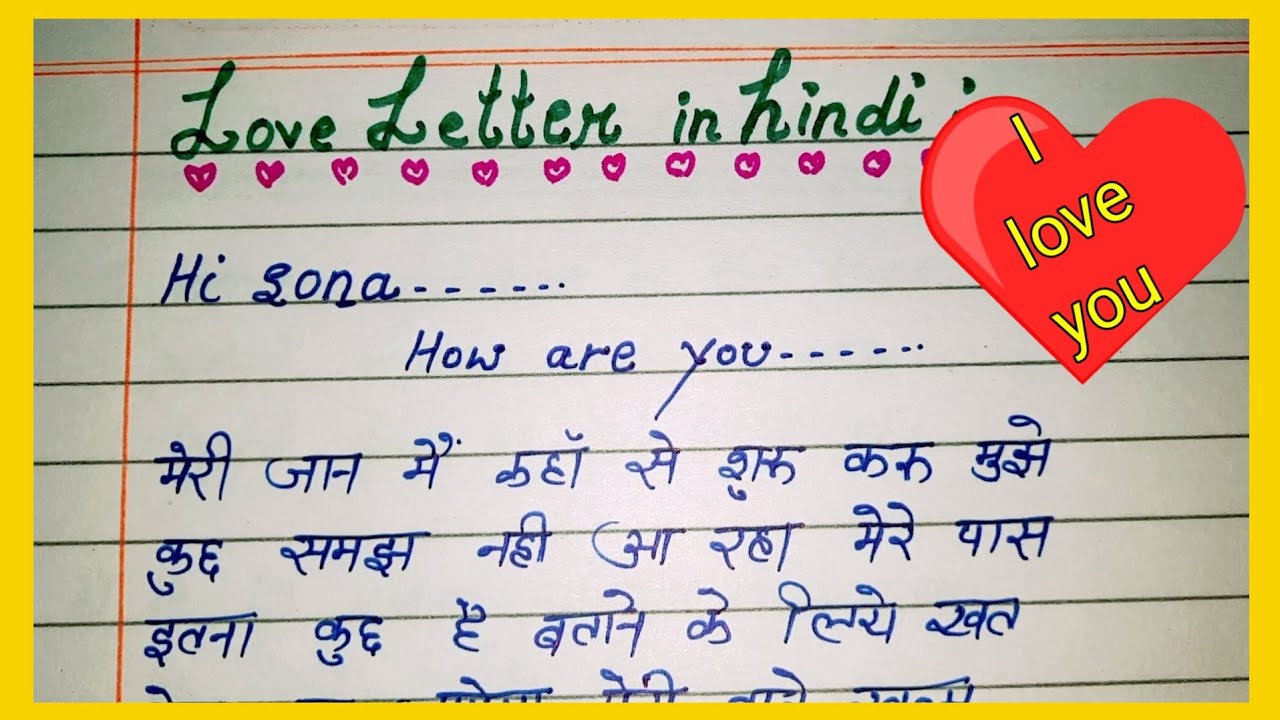 Love Letter in hindi :
I
love
you
Hi sona------
How are you------
मेरी जान मैं कहाँ से शुरू करू मुझे
कुछ समझ नही आ रहा मेरे पास
इतना कुछ है बताने के लिये खत